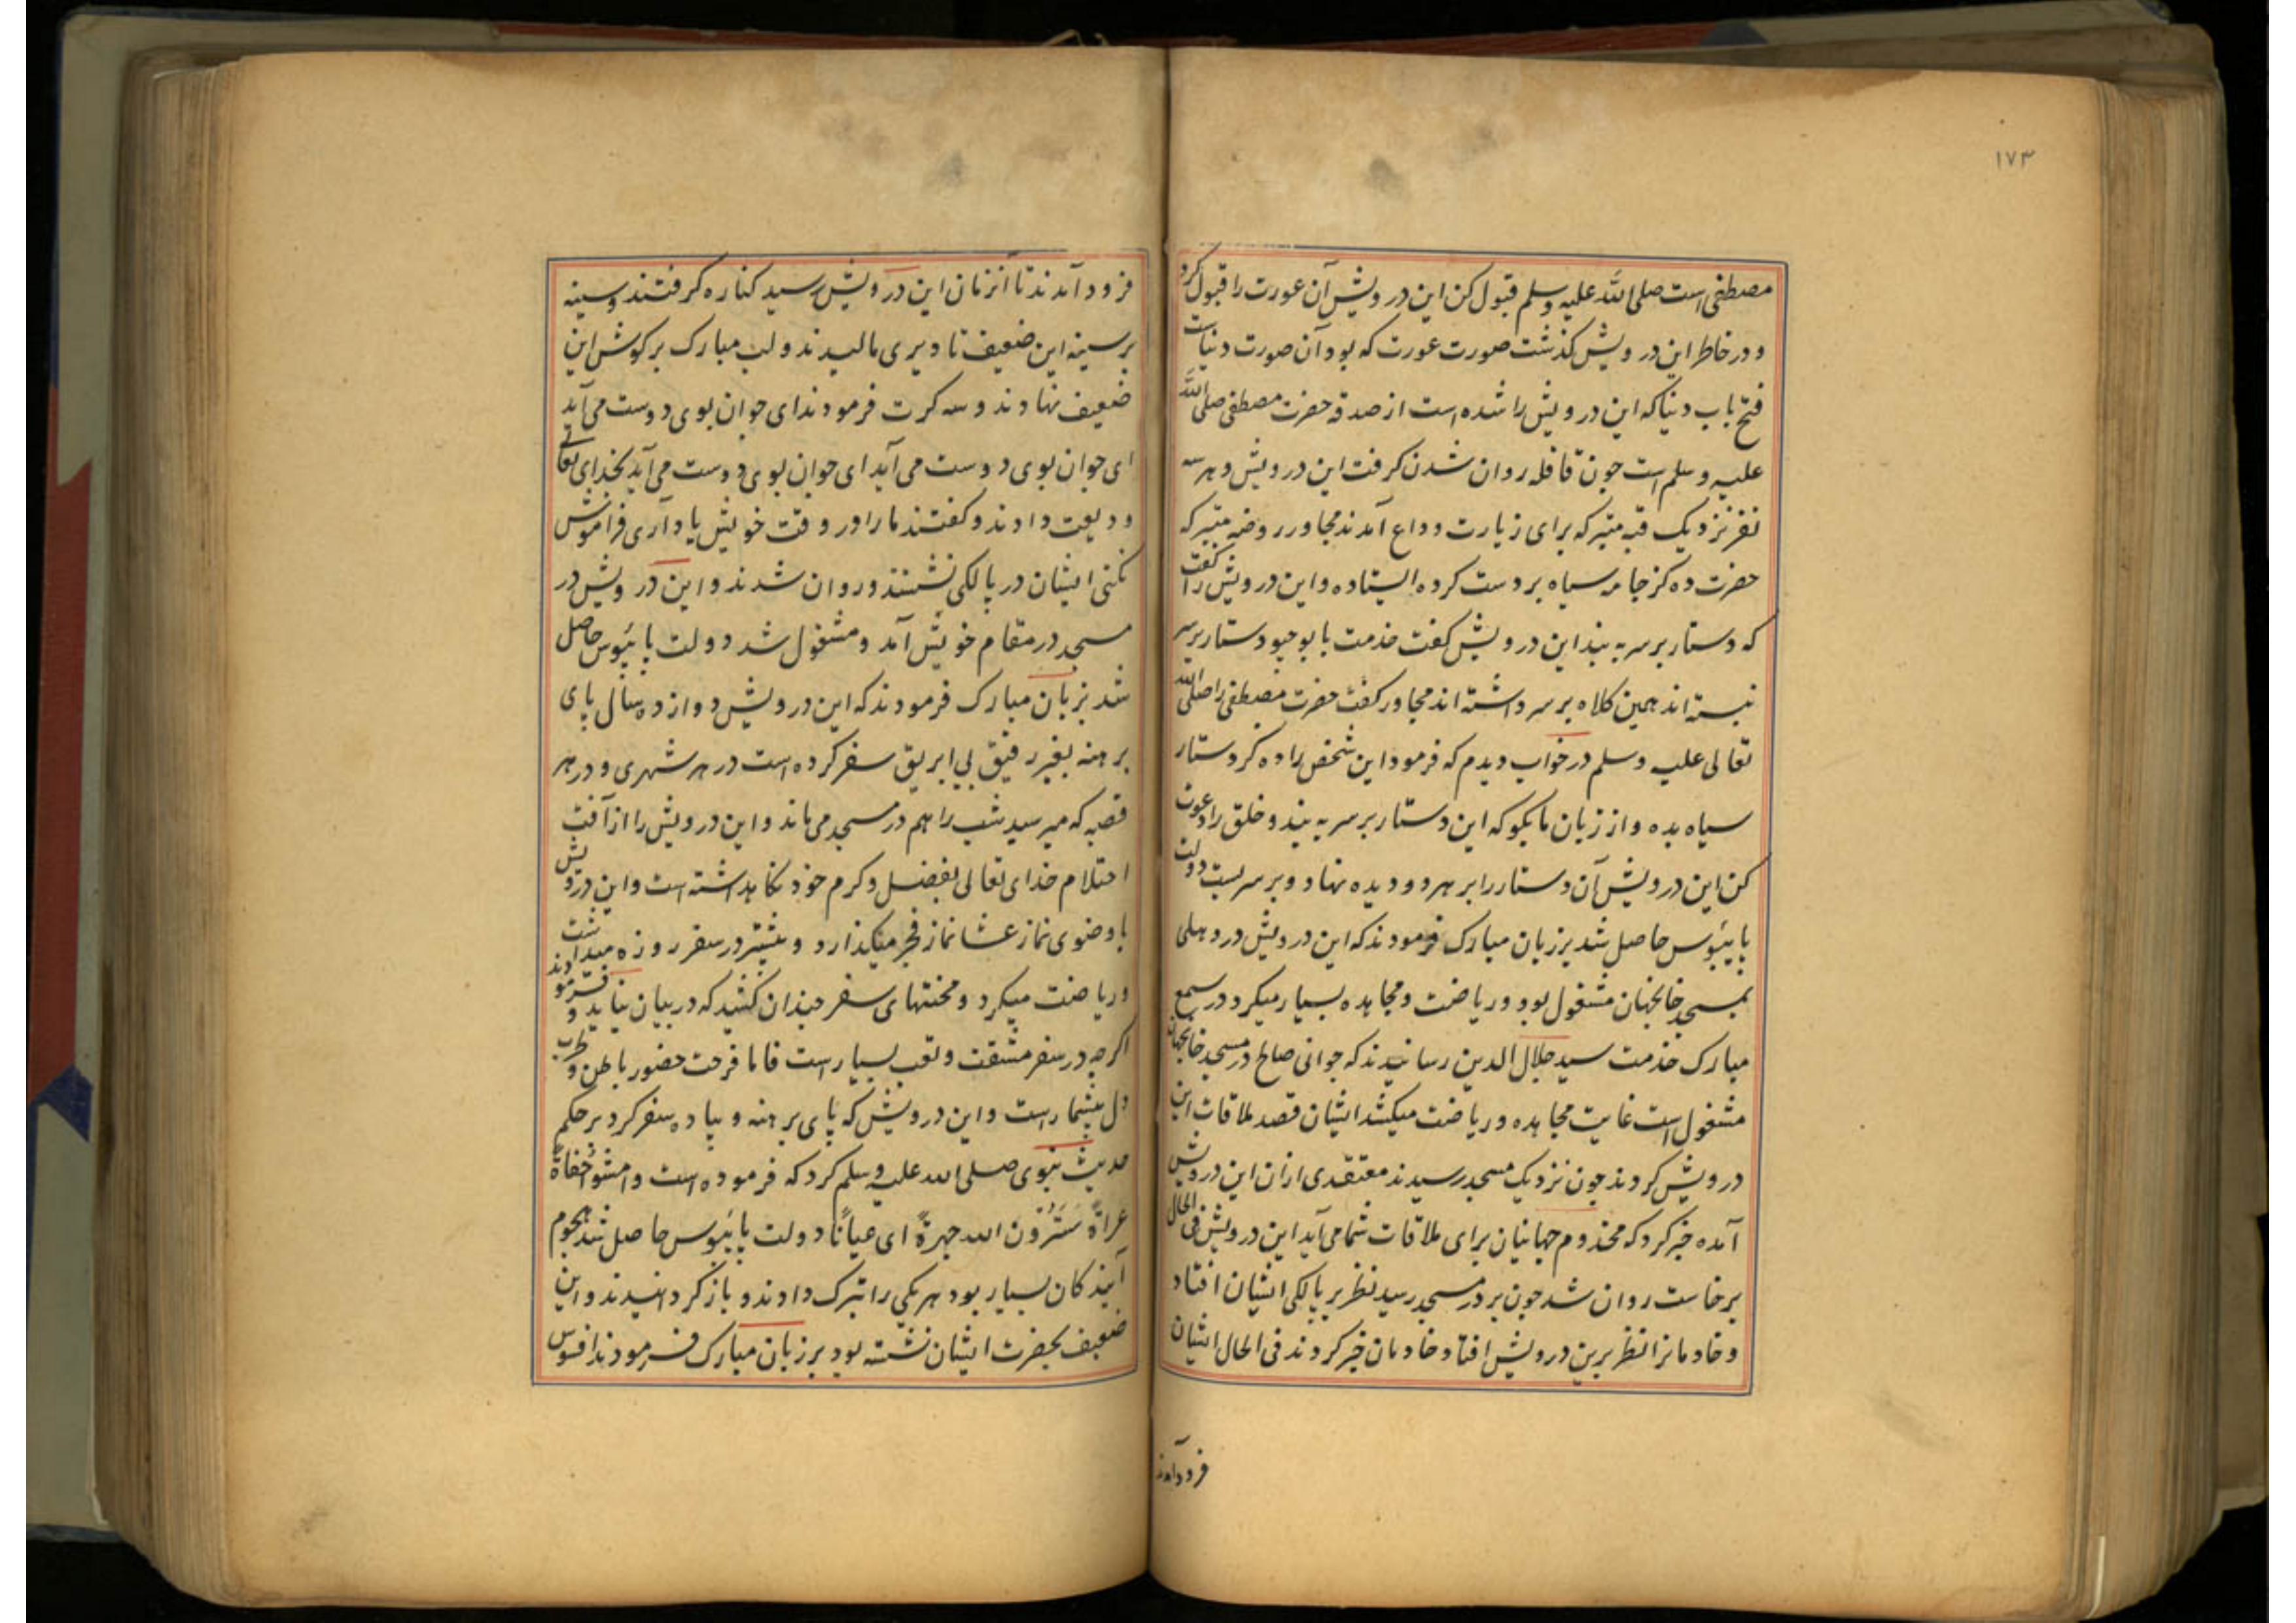 ۱۷۳
مصطفی است صلی الله علیه وسلم قبول کن این درویش آن عورت را قبول کرد
و در خاطر این درویش کذشت صورت عورت که بود آن صورت دنیاست
فتح باب دنیا که این درویش را شده است از صدقه حضرت مصطفی صلی الله
علیه وسلم است جون قافله روان شدن کرفت این درویش و هر سه
نفر نزدیک قبه متبرکه برای زیارت وداع آمدند مجاور روضه متبرکه
حضرت ده کز جامه سیاه بر دست کرده ایستاده و این درویش را کفت
که دستار بر سر به بند این درویش کفت خدمت بابو جیو دستار بر سر
نبسته اند همین کلاه بر سر داشته اند مجاور کفت حضرت مصطفی را صلی الله
تعالی علیه وسلم در خواب دیدم که فرمود این شخص را ده کز دستار
سیاه بده و از زبان ما بکو که این دستار بر سر به بند و خلق را دعوت
کن این درویش آن دستار را بر هر دو دیده نهاد و بر سر بست دولت
پایبوس حاصل شد بر زبان مبارک فرمودند که این درویش در دهلی
بمسجد خانجهان مشغول بود و ریاضت و مجاهده بسیار میکرد در سمع
مبارک خدمت سید جلال الدین رسانیدند که جوانی صالح در مسجد خانجهان
مشغول است غایت مجاهده و ریاضت میکشد ایشان قصد ملاقات این
درویش کردند جون نزدیک مسجد رسیدند معتقدی ازان این درویش
آمده خبر کرد که مخدوم جهانیان برای ملاقات شما می آید این درویش فی الحال
برخاست روان شد جون بر در مسجد رسید نظر بر پالکی ایشان افتاد
و خادمانرا نظر برین درویش افتاد خادمان خبر کردند فی الحال ایشان
فرود آمدند
فرود آمدند تا آنزمان این درویش رسید کناره کرفتند و سینه
بر سینه این ضعیف تا دیری مالیدند و لب مبارک بر کوش این
ضعیف نهادند و سه کرت فرمودند ای جوان بوی دوست می آید
ای جوان بوی دوست می آید ای جوان بوی دوست می آید بخدای تعالی
ودیعت دادند و کفتند ما را در وقت خویش یاد آری فراموش
نکنی ایشان در پالکی نشستند و روان شدند و این درویش در
مسجد در مقام خویش آمد و مشغول شد دولت پایبوس حاصل
شد بزبان مبارک فرمودند که این درویش دوازده سال پای
برهنه بغیر رفیق بی ابریق سفر کرده است در هر شهری و در هر
قصبه که میرسید شب را هم در مسجد می ماند و این درویش را از آفت
احتلام خدای تعالی بفضل و کرم خود نکاهداشته است و این درویش
با وضوی نماز عشا نماز فجر میکذارد و بیشتر در سفر روزه میداشت
و ریاضت میکرد و محنتهای سفر جندان کشید که در بیان نیاید و فرمودند
اکرجه در سفر مشقت و تعب بسیار است فاما فرحت حضور باطن و طرب
دل بیشمار است و این درویش که پای برهنه و پیاده سفر کرد بر حکم
حدیث نبوی صلی الله علیه وسلم کرد که فرموده است وامشوا حفاة
عراة سترون الله جهرة ای عیانا دولت پایبوس حاصل شد هجوم
آیندکان بسیار بود هر یکی را تبرک دادند و باز کردانیدند و این
ضعیف بحضرت ایشان نشسته بود بر زبان مبارک فرمودند افسوس